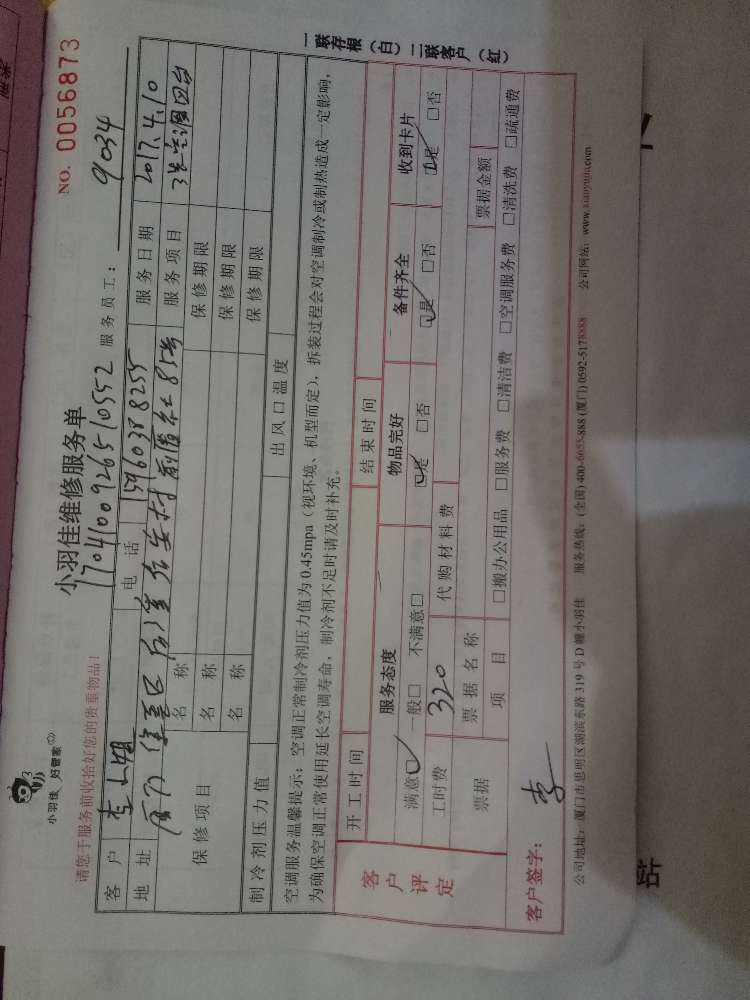 小羽佳 好管家
小羽佳维修服务单
NO. 0056873
1704100926510552 服务员工： 9034
请您于服务前收拾好您的贵重物品！
客户 李小姐 电话 15960388255 服务日期 2017.4.10
地址 厦门 集美区后溪 村 前进社85号 服务项目 空调四台
保修项目 名称 保修期限
名称 保修期限
名称 保修期限
制冷剂压力值 出风口温度
空调服务温馨提示：空调正常制冷剂压力值为 0.45mpa（视环境、机型而定），拆装过程会对空调制冷或制热造成一定影响，
为确保空调正常使用延长空调寿命，制冷剂不足时请及时补充。
一联存根（白） 二联客户（红）
开工时间 结束时间
客户评定 服务态度 物品完好 备件齐全 收到卡片
满意☑ 一般□ 不满意□ ☑是 □否 ☑是 □否 ☑是 □否
工时费 320 代购材料费
票据 票据名称 票据金额
项目 □搬办公用品 □服务费 □清洁费 □空调服务费 □清洗费 □疏通费
客户签字： 李
公司地址：厦门市思明区湖滨东路 319 号 D 幢小羽佳 服务热线：(全国) 400-6655-888 (厦门) 0592-5178888 公司网站：www.xiaoyujia.com